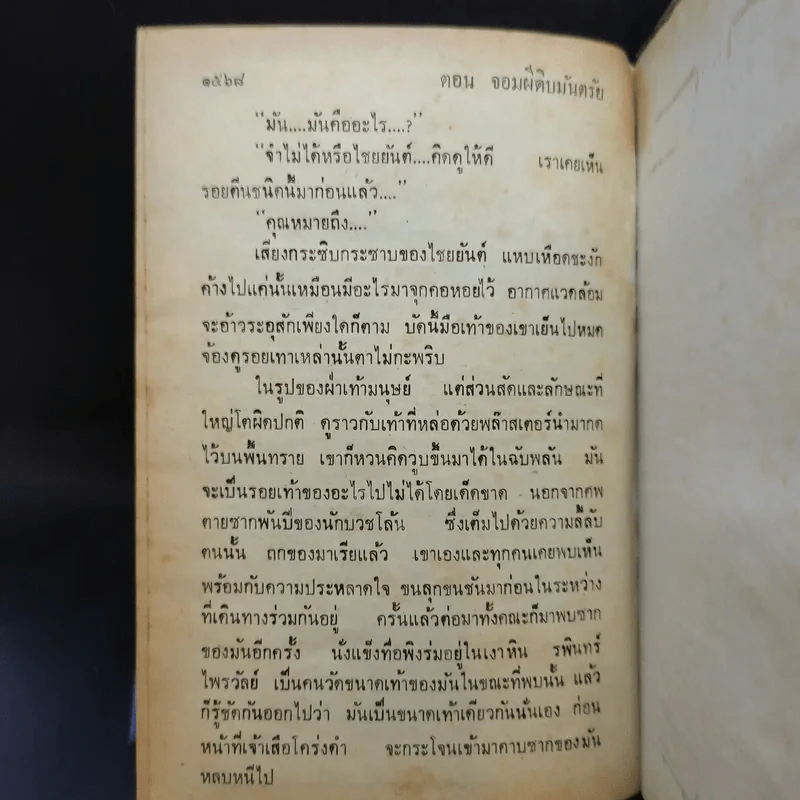 ๑๕๖๘ ตอน จอมผีดิบมันตรัย
“มัน....มันคืออะไร....?”
“จำไม่ได้หรือไชยยันต์....คิดดูให้ดี เราเคยเห็น
รอยตีนชนิดนี้มาก่อนแล้ว....”
“คุณหมายถึง....”
เสียงกระซิบกระซาบของไชยยันต์ แหบเหือดชะงัก
ค้างไปแค่นั้นเหมือนมีอะไรมาจุกคอหอยไว้ อากาศแวดล้อม
จะอ้าวระอุสักเพียงใดก็ตาม บัดนี้มือเท้าของเขาเย็นไปหมด
จ้องดูรอยเทาเหล่านั้นตาไม่กะพริบ
ในรูปของฝ่าเท้ามนุษย์ แต่ส่วนสัดและลักษณะที่
ใหญ่โตผิดปกติ ดูราวกับเท้าที่หล่อด้วยพล๊าสเตอร์นำมากด
ไว้บนพื้นทราย เขาก็หวนคิดวูบขึ้นมาได้ในฉับพลัน มัน
จะเป็นรอยเท้าของอะไรไปไม่ได้โดยเด็ดขาด นอกจากศพ
ตายซากพันปีของนักบวชโล้น ซึ่งเต็มไปด้วยความลี้ลับ
ตนนั้น ถูกของมาเรียแล้ว เขาเองและทุกคนเคยพบเห็น
พร้อมกับความประหลาดใจ ขนลุกขนชันมาก่อนในระหว่าง
ที่เดินทางร่วมกันอยู่ ครั้นแล้วต่อมาทั้งคณะก็มาพบซาก
ของมันอีกครั้ง นั่งแข็งทื่อพิงร่มอยู่ในเงาหิน รพินทร์
ไพรวัลย์ เป็นคนวัดขนาดเท้าของมันในขณะที่พบนั้น แล้ว
ก็รู้ชัดกันออกไปว่า มันเป็นขนาดเท้าเดียวกันนั่นเอง ก่อน
หน้าที่เจ้าเสือโคร่งดำ จะกระโจนเข้ามาคาบซากของมัน
หลบหนีไป